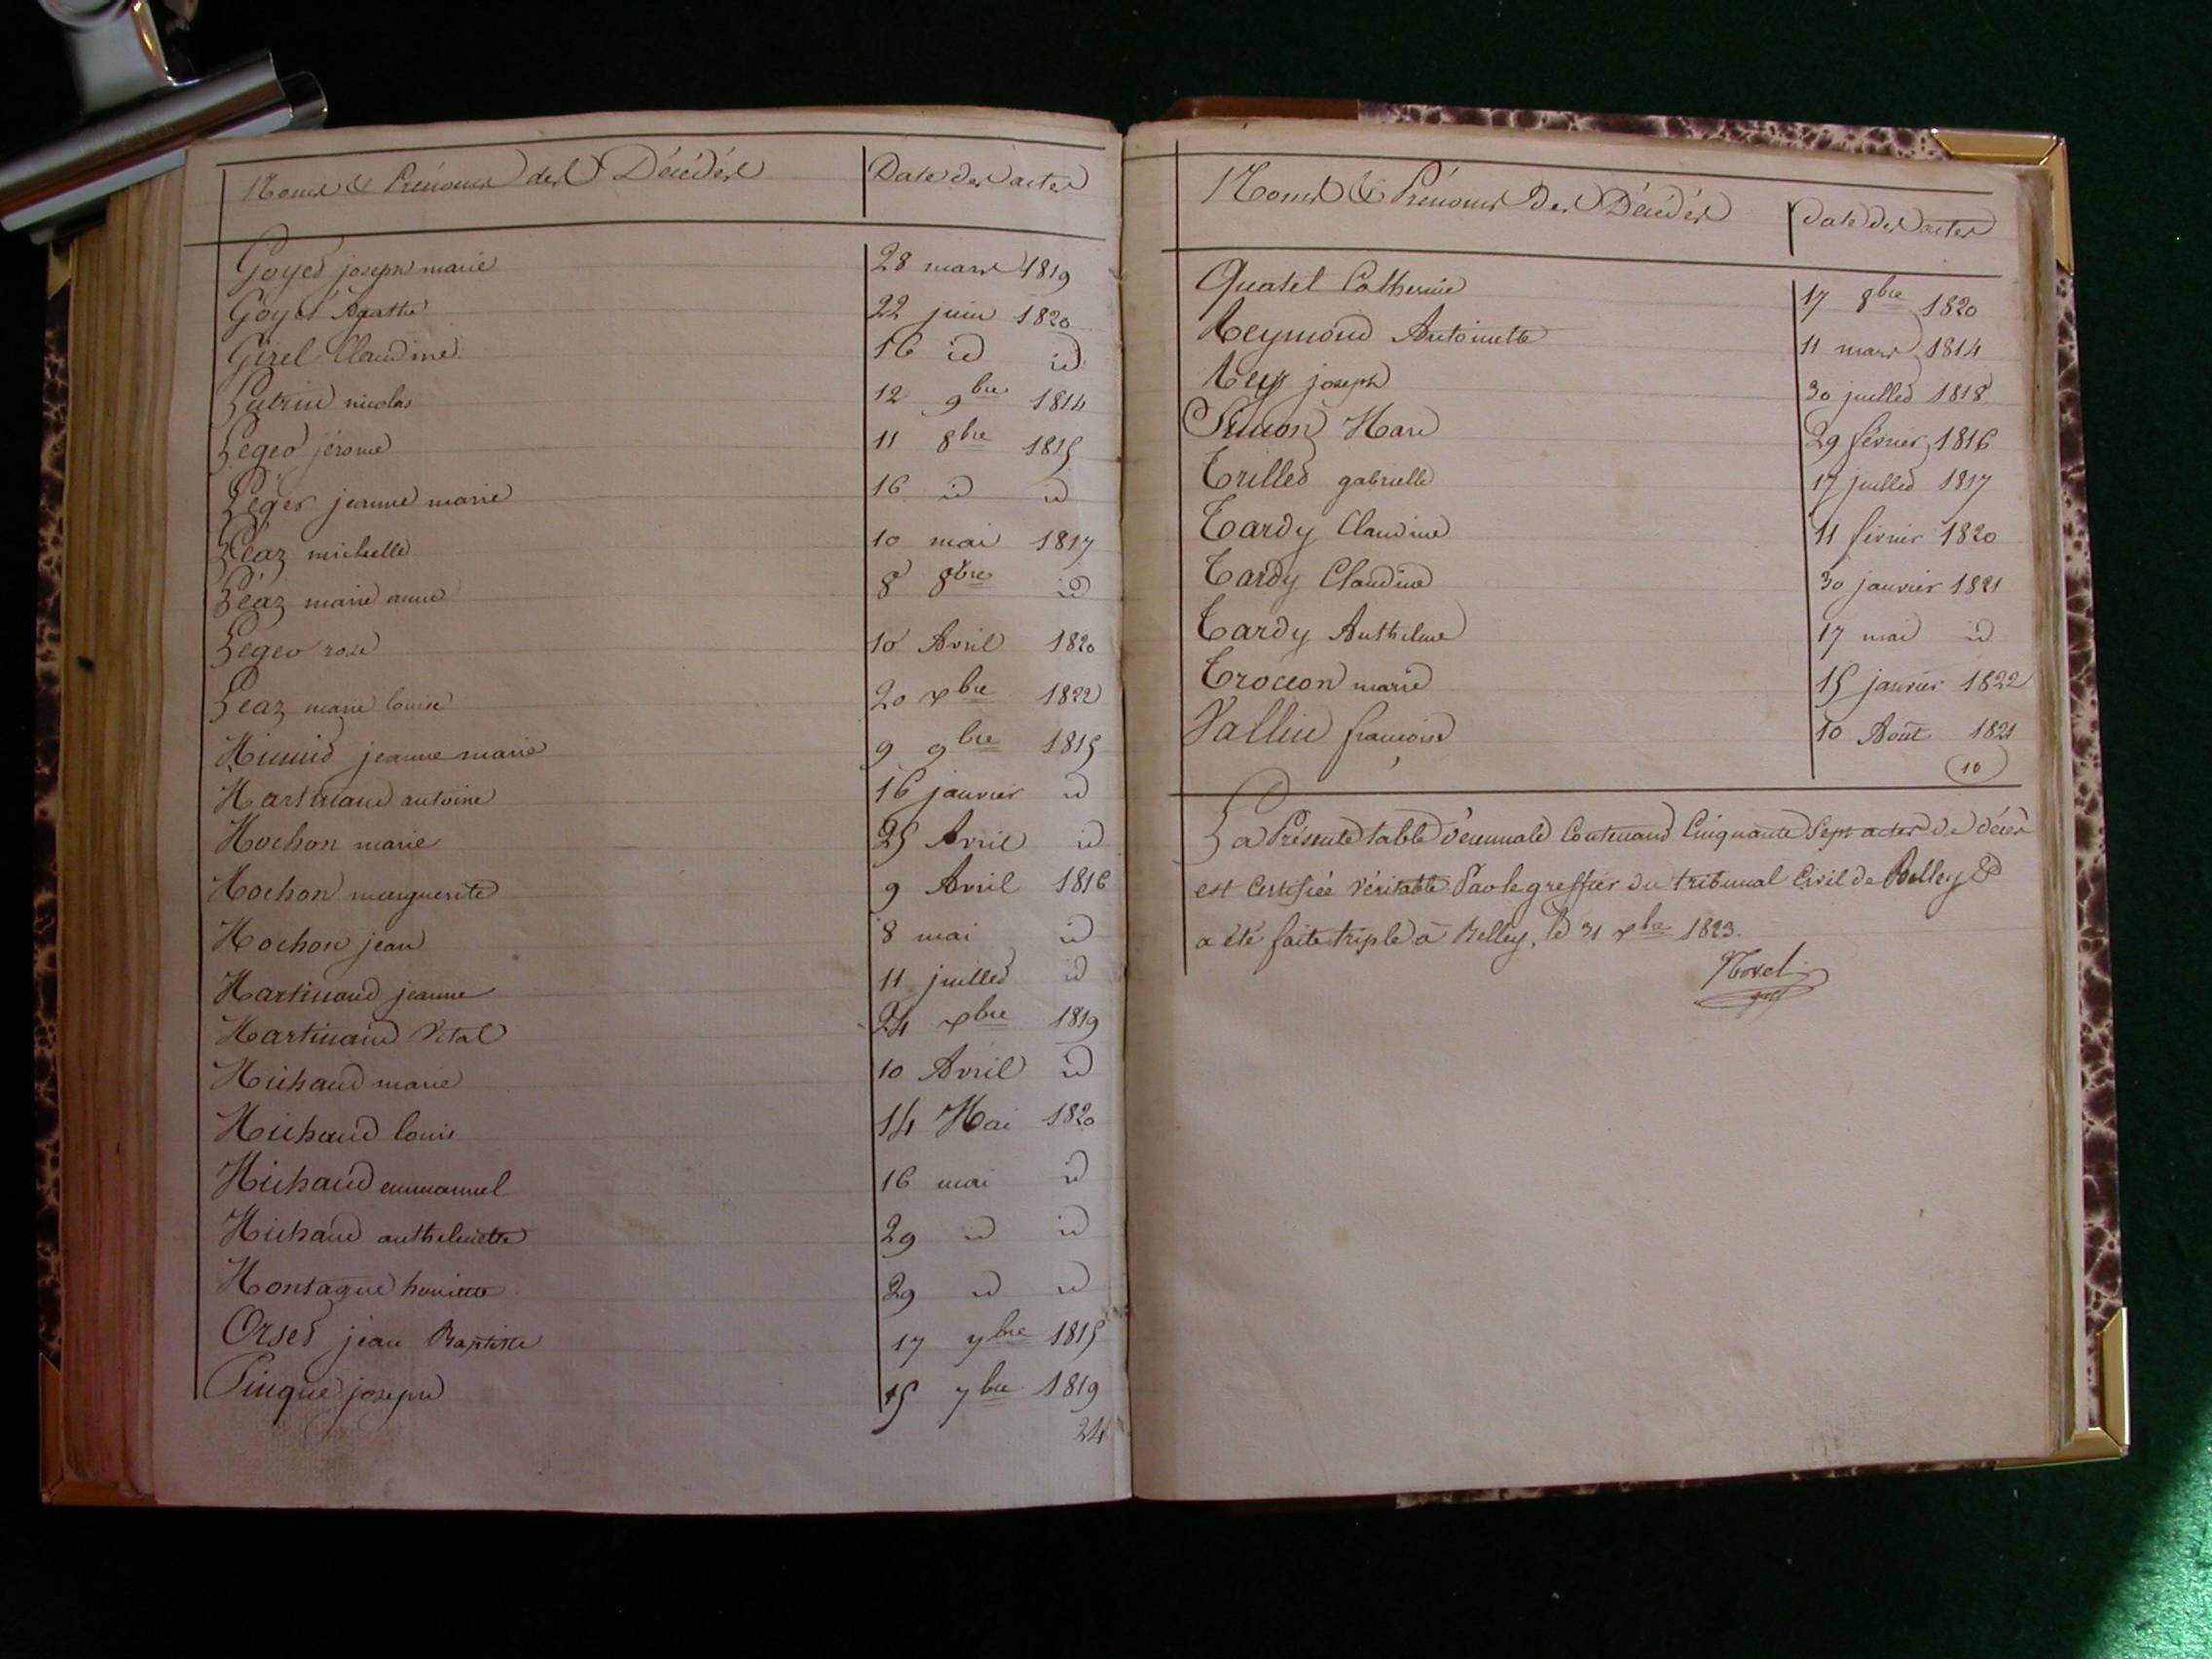 Noms & Prénoms des Décédés Date des actes
Goyet joseph marie 28 mars 1819
Goyet Agathe 22 juin 1820
Girel Claudine 16 id id
Latrin nicolas 12 9bre 1814
Leger jérome 11 8bre 1815
Léger jeanne marie 16 id id
Léaz michelle 10 mai 1817
Léaz marie anne 8 8bre id
Leger rose 10 Avril 1820
Leaz marie louise 20 xbre 1822
jeanne marie 9 9bre 1815
Martinand antoine 16 janvier id
Mochon marie 25 Avril id
Mochon marguerite 9 Avril 1816
Mochon jean 8 mai id
Martinand jeanne 11 juillet id
Martinand Vital 24 xbre 1819
Michaud marie 10 Avril id
Michaud louis 14 Mai 1820
Michaud emmanuel 16 mai id
Michaud anthelmette 29 id id
Montagne henriette 29 id id
Orset jean Baptiste 17 7bre 1815
Pingue joseph 15 7bre 1819
24
Noms & Prénoms des Décédés Date des actes
Quatel Catherine 17 8bre 1820
Reymond Antoinette 11 mars 1814
Rey joseph 30 juillet 1818
Simon Marc 29 février 1816
Trillet gabrielle 17 juillet 1817
Tardy Claudine 11 février 1820
Tardy Claudine 30 janvier 1821
Tardy Anthelme 17 mai id
Trocon marie 15 janvier 1822
Vallin françoise 10 Août 1821
10
La Présente table décennale Contenant Cinquante Sept actes de décès
est Certifiée Véritable Par le greffier du tribunal Civil de Belley &
a été faite triple à Belley, le 31 xbre 1823.